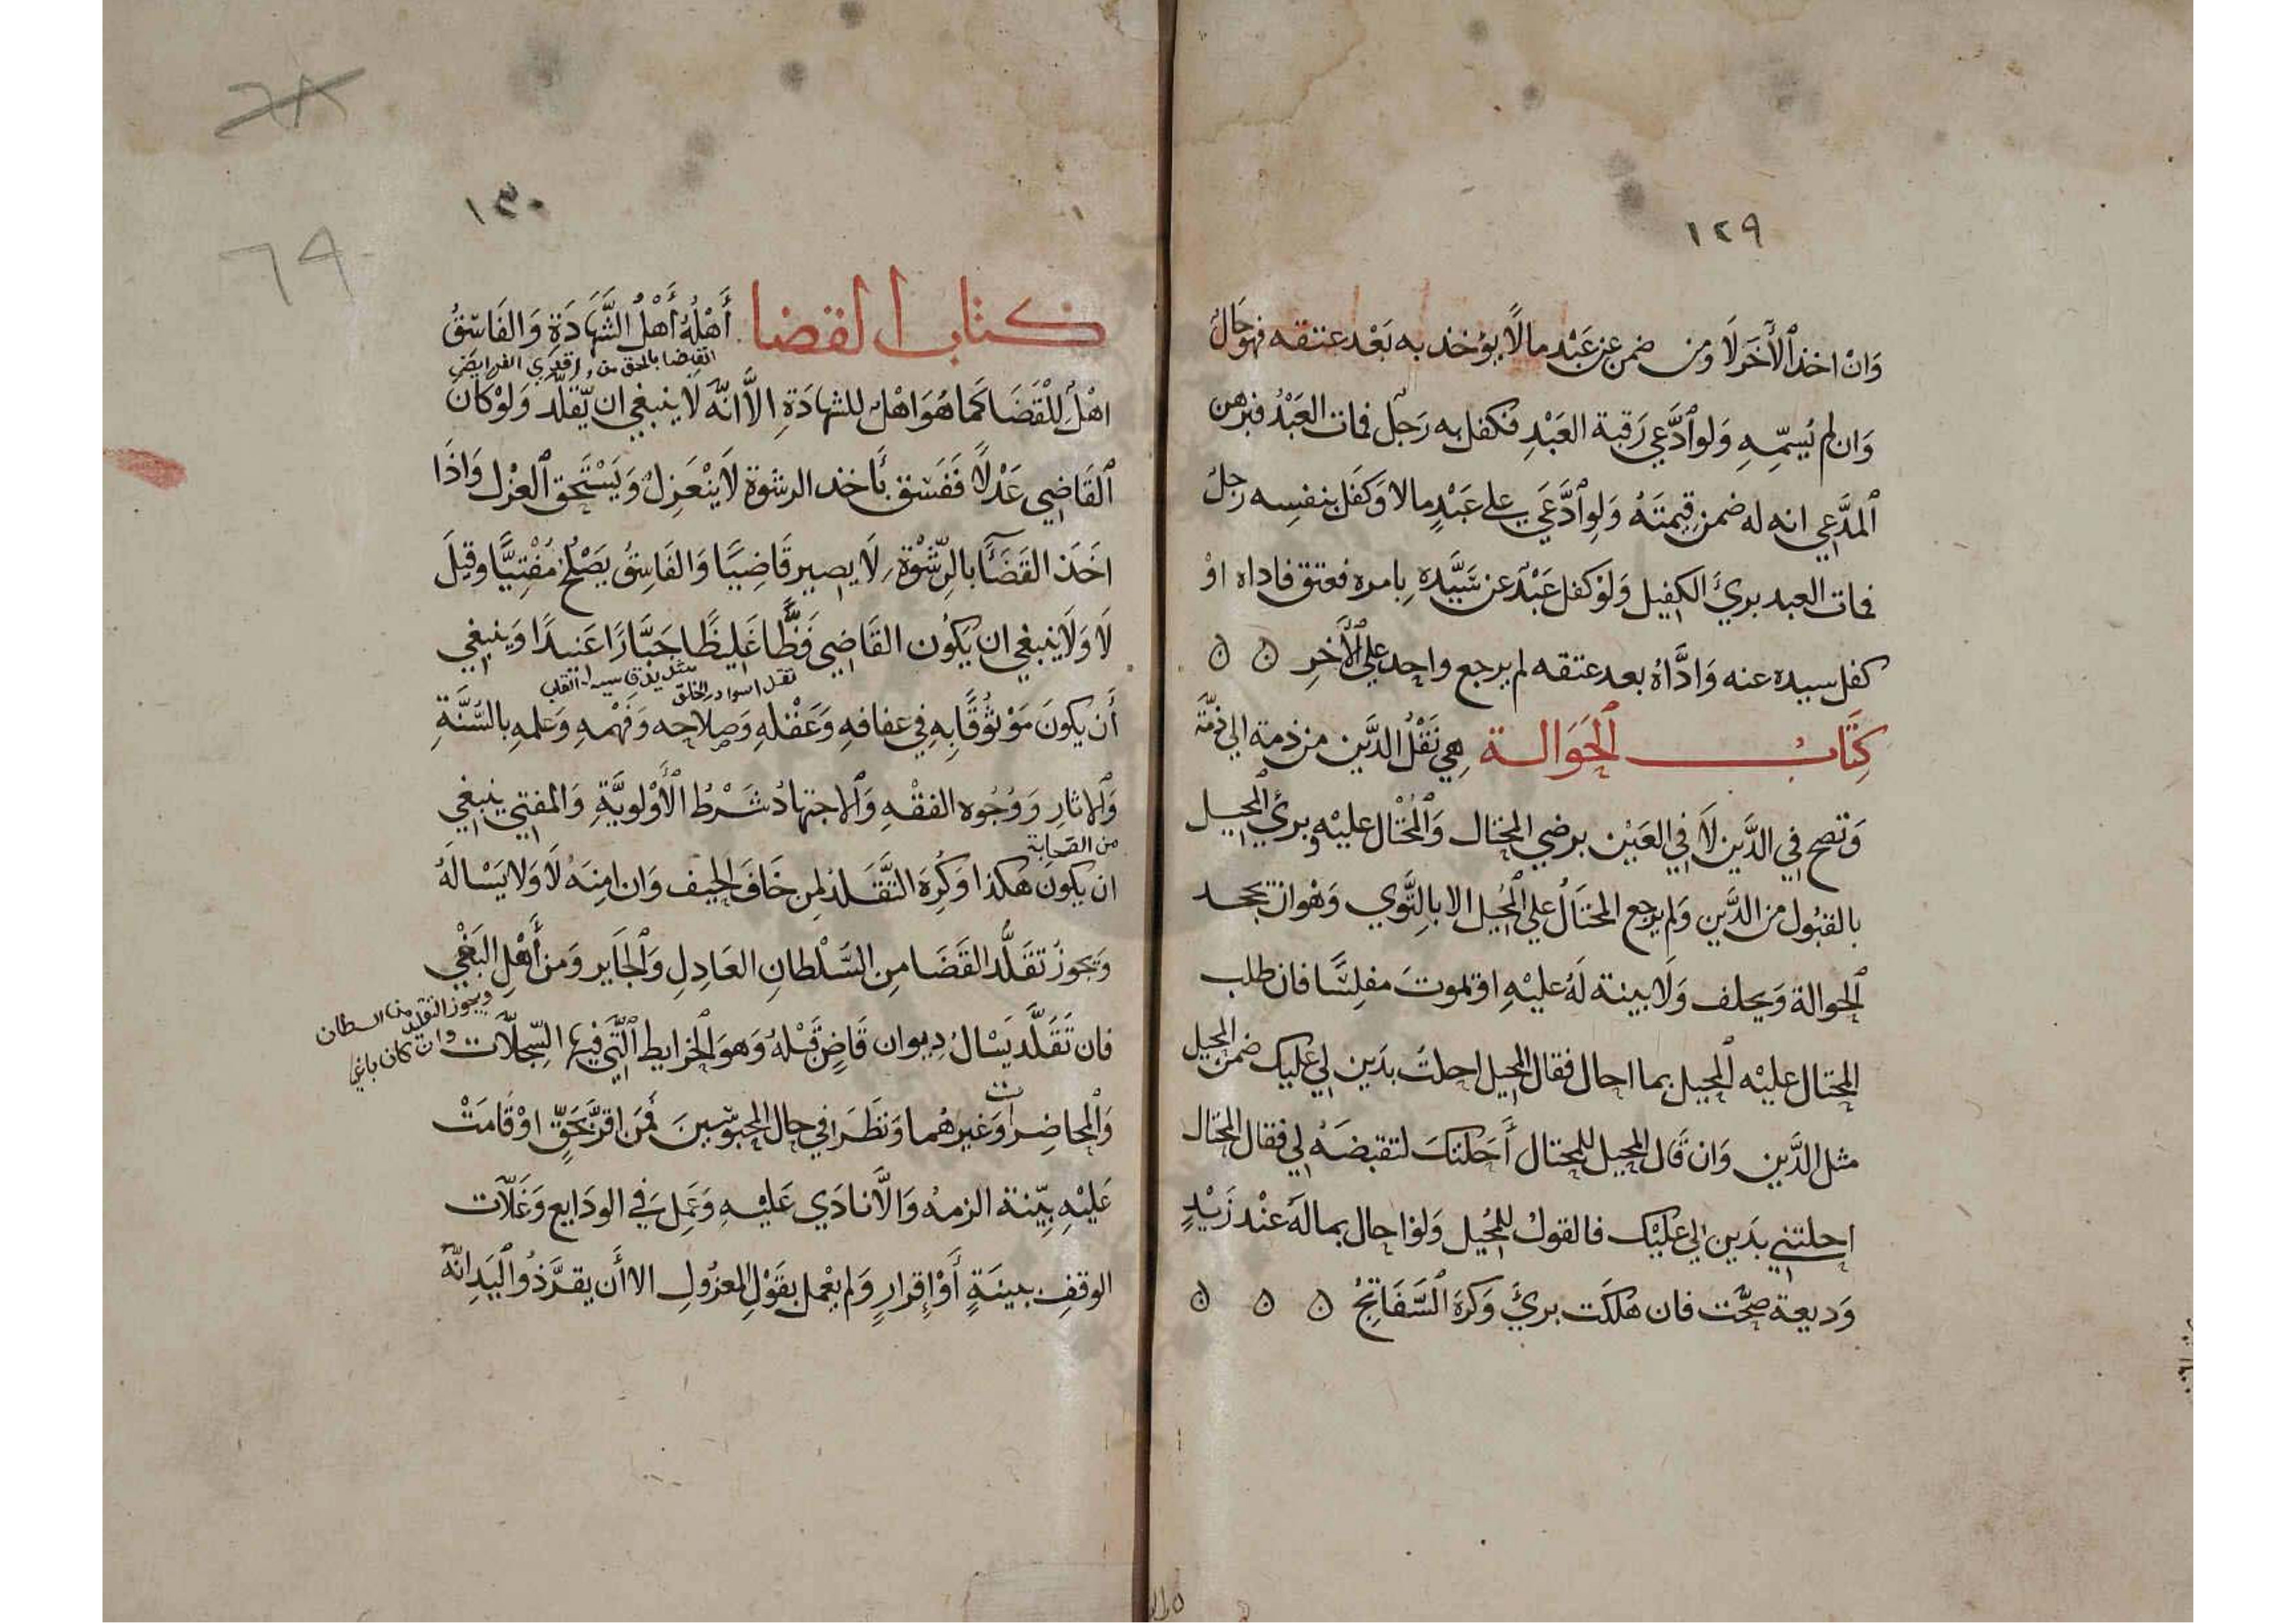 ١٢٩
وَانْ اخذ ٱلْأَخَرَ لَا ومن ضمن عن عَبْد مالًا يؤخذ به بَعْد عتقه فهو حَالٌ
وَان لم يُسمِّهِ وَلو ٱدَّعي رَقبة العَبْدِ فكفل به رَجلٌ فمات العَبْدُ فبرهن
ٱلمدَّعي انه له ضمن قِيمتَهُ وَلو ٱدَّعَي علي عَبْدٍ مالا وَكفل بنفسِه رجلٌ
فمات العبد بريَ الكفيل وَلوْ كفل عَبْدٌ عن سَيَّدِهِ بِامره فعتق فاداه اوْ
كفل سيده عنه وَادَّاهُ بعد عتقه لم يرجع واحد علي ٱلأَخرِ ۵ ۵
كِتَابُ ٱلحَوَالة هِيَ نَقْلُ الدَّين من ذمة الي ذمَّة
وَتصح في الدَّين لَا في العَيْن برضي المحتال وَٱلمُحْتال عليْهِ وبريَ ٱلمحيل
بالقبُول من الدَّين وَلم يرجع المحتَالُ علي ٱلمُحيل الا بالتَّوي وَهْو ان يجحد
ٱلحوالة وَيحلف وَلَا بينة لَهُ عليْهِ او يموتَ مفلِسًا فان طلب
المحتال عليْه ٱلمحيل بما احال فقال المحيل احلتُ بدَين لي عليك ضمن المحيل
مثل الدَّين وَان قَال المحيل للمحتال أَحَلتكَ لتقبضَهُ لي فقال المحتال
احلتني بدَين لي عليْك فالقول للمُحيل وَلو احال بماله عنْد زَيْدٍ
وَديعة صحَّت فان هلكَت بريَ وَكرهَ ٱلسَّفَاتِجُ ۵ ۵ ۵
١٣٠
٦٨
٦٩
كتاب القضا أَهْلُهُ أَهْلُ الشَّهَادَةِ وَالفَاسِقُ
اهْلٌ لِلْقَضَا كَما هُوَ اهْلٌ للشهادَةِ الاَّ انَّه لَا ينبغي ان يّقلَّد وَلوْ كَان
ٱلقَاضِي عَدْلًا فَفَسَق بأَخذ الرشوة لَا ينْعَزِلُ وَيَسْتَحق ٱلعزْل وَاذَا
اخَذ القَضَآَ بالرِّشْوَةِ لَا يصير قَاضِيًا وَالفَاسِقُ يَصْلحُ مُفْتِيًّا وقيلَ
لَا وَلَا ينبغي ان يَكُون القَاضِي فَظًّا غَلِيظًا جَبَّارًا عَنِيدًا وَينبغي
أَن يكونَ مَوْثُوقًا بِهِ في عفافهِ وَعَقْلهِ وَصلاحِه وَفَهْمهِ وَعلمهِ بالسُّنَّةِ
وَٱلاثارِ وَوُجُوه الفقْهِ وَٱلاجتهادُ شَرْطُ ٱلأَوْلويَّةِ وَالمفتي ينبغي
من الصحابة
ان يكونَ هكذا وَكُرِهَ التَّقَلد لمن خَافَ الحيف وَان امِنَهُ لَا وَلا يَسْالهُ
وَيجوزُ تقَلُّد القَضَا مِن السُّلْطانِ العَادِلِ وَٱلجَاير وَمن أَهْلِ البَغْي
ويجوز التقليد من السطان
وان كان باغيا
فان تَقَلَّد يَسْالُ دِيوان قَاضٍ قَبْلهُ وَهوَ ٱلخرايط ٱلَّتي فيها السِّجلَّات
وَٱلمحاضِرات وَغيرهُما وَنظَرَ في حال المحبوسينَ فَمَن اقرَّ بحَقٍّ اوْ قَامَتْ
عَليْهِ بيّنة الزمهُ وَالَّا نادَي عَليْهِ وَعَمِلَ في الودَايع وَغَلَّات
الوقفِ ببينَةٍ أَوْ إِقرارٍ وَلم يعْمل بقَوْلِ المعزُولِ الا أَن يقرَّ ذُو ٱليَدِ انَّه